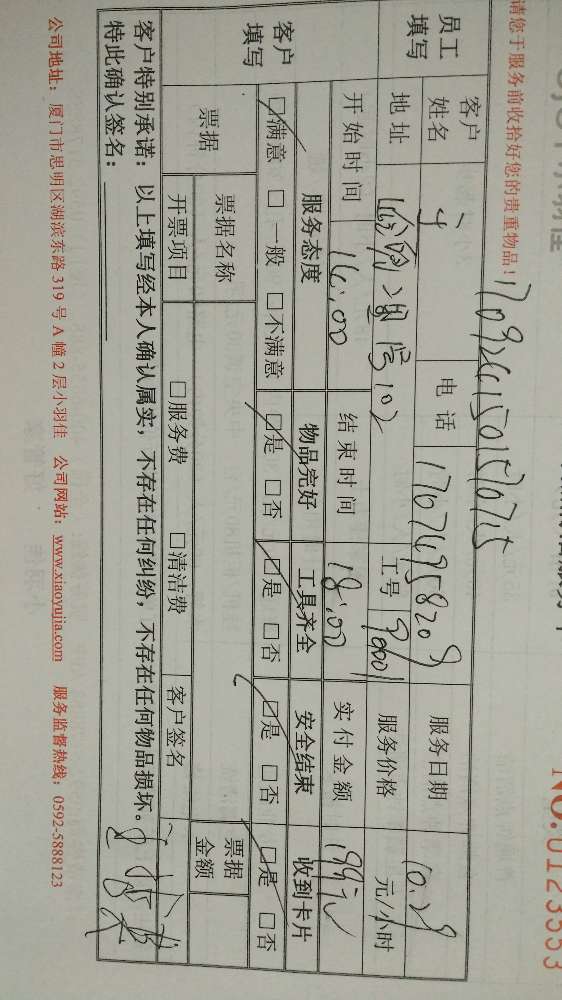 NO.0123553
请您于服务前收拾好您的贵重物品！
员工填写 客户姓名 电话 17674758209 服务日期 10.29
地址 102 工号 90001 服务价格 元/小时
开始时间 14:00 结束时间 18:00 实付金额 199元
客户填写 服务态度 物品完好 工具齐全 安全结束 收到卡片
□满意 □一般 □不满意 □是 □否 □是 □否 □是 □否 □是 □否
票据 票据名称 票据金额
开票项目 □服务费 □清洁费 客户签名
客户特别承诺：以上填写经本人确认属实，不存在任何纠纷，不存在任何物品损坏。
特此确认签名：
公司地址：厦门市思明区湖滨东路 319 号 A 幢 2 层小羽佳 公司网站：www.xiaoyujia.com 服务监督热线：0592-5888123